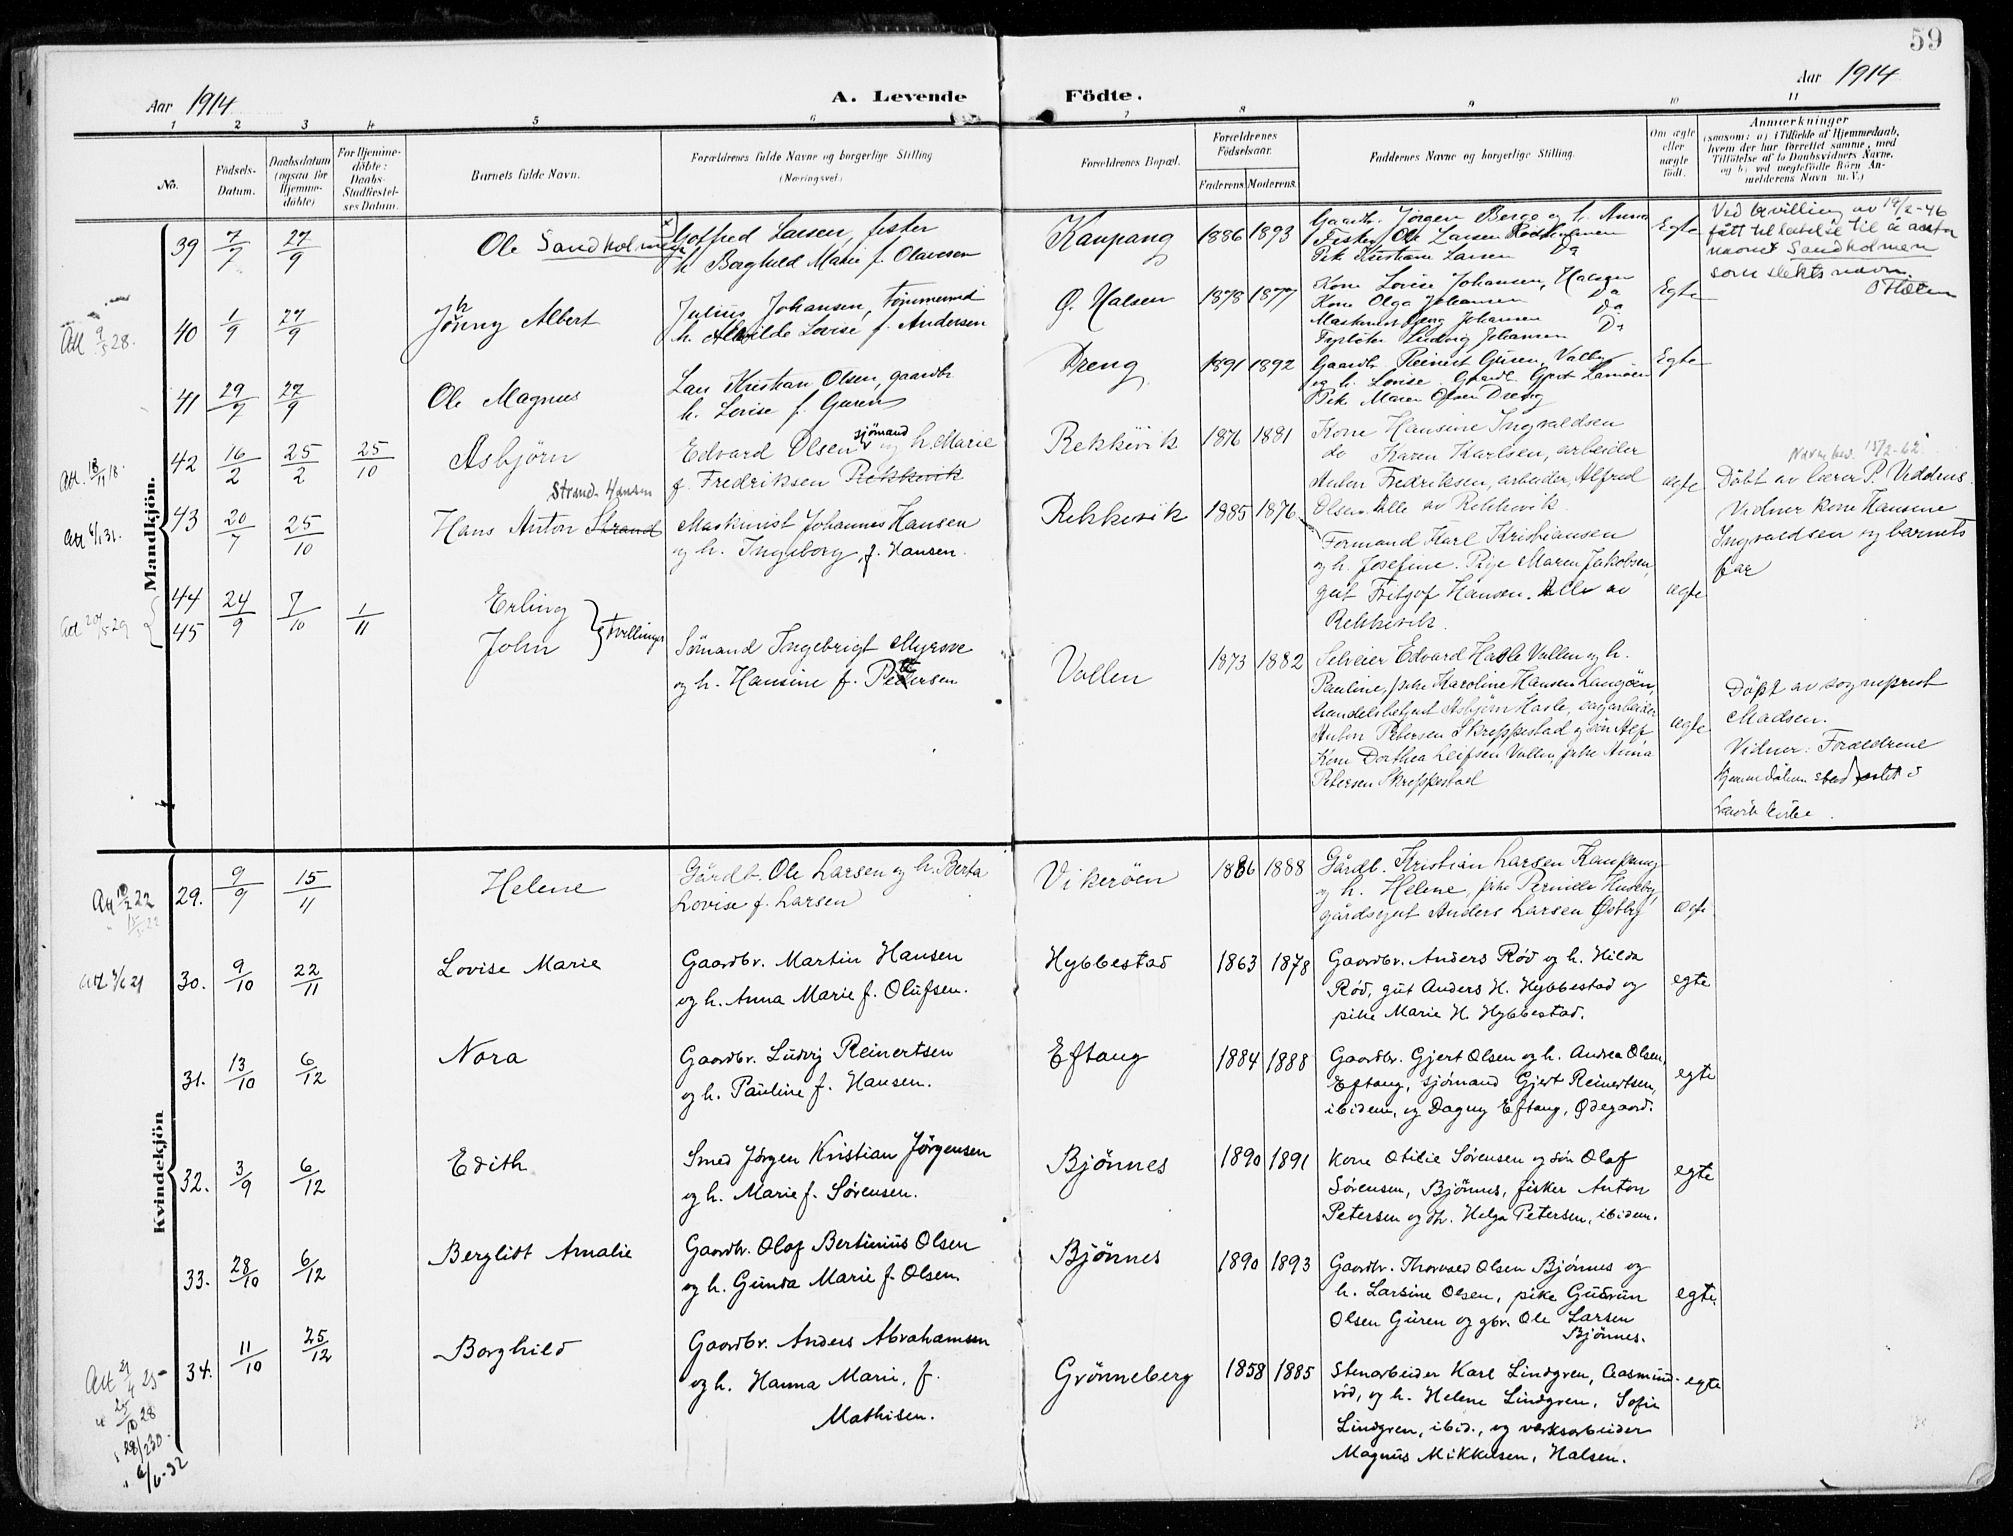 59
Aar 1914
A. Levende Födte.
Aar 1914
1 2 3 4 5 6 7 8 9 10 11
No.
Födsels-Datum.
Daabsdatum (ogsaa for Hjemme-döbte)
For Hjemme-döbte: Daabs-Stadfæstel-ses Datum.
Barnets fulde Navn.
Forældrenes fulde Navne og borgerlige Stilling (Næringsvei)
Forældrenes Bopæl.
Forældrenes Födselsaar.
Faderens. Moderens.
Faddernes Navne og borgerlige Stilling.
Om ægte eller uægte födt.
Anmærkninger
(saasom: a) i Tilfælde af Hjemmedaab, hvem der har forrettet samme, med Tilföielse af to Daabsvidners Navne, og b) ved uægtefödte Börn An-melderens Navn m.V.)
Mandkjön.
39 7/7 27/9 Ole Sandholmen
Gotfred Larsen, fisker
h. Borghild Marie f. Olavesen
Kaupang 1886 1893
Gaardbr. Jørgen Berge og h. Anna
Fisker Ole Larsen
Pike Kristiane Larsen Da
Egte
Ved bevilling av 19/2-46
fått tillatelse til å anta
navnet Sandholmen
som slektsnavn.
Att 9/5 28.
40 1/9 27/9 Johnny Albert
Julius Johansen, tømmermd
h. Alvilde Lovise f. Andersen
Ø. Halsen 1878 1877
Kone Lovise Johansen, Halsen
Kone Olga Johansen Da
Maskinist Georg Johansen Da
Ludvig Johansen Da
Egte
41 29/7 27/9 Ole Magnus
Lars Kristian Olsen, gaardbr.
h. Lovise f. Guren
Dreng 1891 1892
Gaardb. Reinert Guren, Valby
og h. Lovise. Gaardb. Gjert
Pike Maren Olsen Dreng
Egte
Att. 13/11 18.
42 16/2 25/2 25/10 Asbjörn
Edvard Olsen sjömand og h. Marie
f. Fredriksen Rekkevik
Rekkevik 1876 1881
Kone Hansine Ingvaldsen
do Karen Karlsen, arbeider
Anton Fredriksen, arbeider, Alfred
Olsen Alle av Rekkevik.
ægte
15/2-62
Döbt av lærer P. Uddnes.
Vidner kone Hansine
Ingvaldsen og barnets
far
Att 4/1 31.
43 20/7 25/10 Hans Anton Strand
Strand-Hansen
Maskinist Johannes Hansen
og h. Ingeborg f. Hansen.
Rekkevik 1885 1876
Formand Karl Kristiansen
og h. Josefine. Pige Maren Jakobsen,
gut Fritjof Hansen. Alle av
Rekkevik.
ægte
Att 20/5 29
44
45 24/9 7/10 1/11 Erling
John } Tvillinger
Sömand Ingebrigt Myrsve
og h. Hansine f. Pettersen
Vallen 1873 1882
Selveier Edvard Hasle Vallen og h.
Pauline, pike Karoline Hansen Langöen,
handelsbetjent Asbjörn Hasle, sagarbeider
Anton Petersen Skreppestad og sön Alf
Kone Dorthea Leifsen Vallen, pike Anna
Petersen Skreppestad
ægte
Döpt av sogneprest
Madsen.
Vidner: Foreldrene
Hjemmedåpen stadfæstet i
Larvik kirke.
Kvindekjön
29. 9/9 15/11 Helene
Gårdb. Ole Larsen og h. Berta
Lovise f. Larsen
Vikeröen 1886 1888
Gårdb. Kristian Larsen Kaupang
og h. Helene, pike Pernille Huseby,
gårdsgut Anders Larsen Østby
ægte
30. 9/10 22/11 Lovise Marie
Gaardbr. Martin Hansen
og h. Anna Marie f. Olufsen.
Hybbestad 1863 1878
Gaardbr. Anders Röd og h. Hilda
Röd, gut Anders H. Hybbestad og
pike Marie H. Hybbestad.
egte
31. 13/10 6/12 Nora
Gaardbr. Ludvig Reinertsen
og h. Pauline f. Hansen.
Eftang 1884 1888
Gaardbr. Gjert Olsen og h. Andrea Olsen,
Eftang, sjömand Gjert Reinertsen,
ibidem, og Dagny Eftang, Ödegaard.
egte
32. 3/9 6/12 Edith
Smed Jörgen Kristian Jörgensen
og h. Marie f. Sörensen.
Bjönnes 1890 1891
Kone Otilie Sörensen og sön Olaf
Sörensen, Bjönnes, fisker Anton
Petersen og h. Helga Petersen, ibidem.
egte
33. 28/10 6/12 Berglidt Amalie
Gaardbr. Olaf Bertinius Olsen
og h. Gunda Marie f. Olsen.
Bjönnes 1890 1893
Gaardbr. Thorvald Olsen Bjönnes og
h. Larsine Olsen, pike Gudrun
Olsen Guren og gbr. Ole Larsen
Bjönnes.
egte.
34. 11/10 25/12 Borghild
Gaardbr. Anders Abrahamsen
og h. Hanna Marie, f.
Mathisen.
Grönneberg 1858 1885
Stenarbeider Karl Lindgren, Aasmund-
röd, og h. Helene Lindgren, Sofie
Lindgren, ibid., og verksarbeider
Magnus Mikkelsen, Halsen.
egte